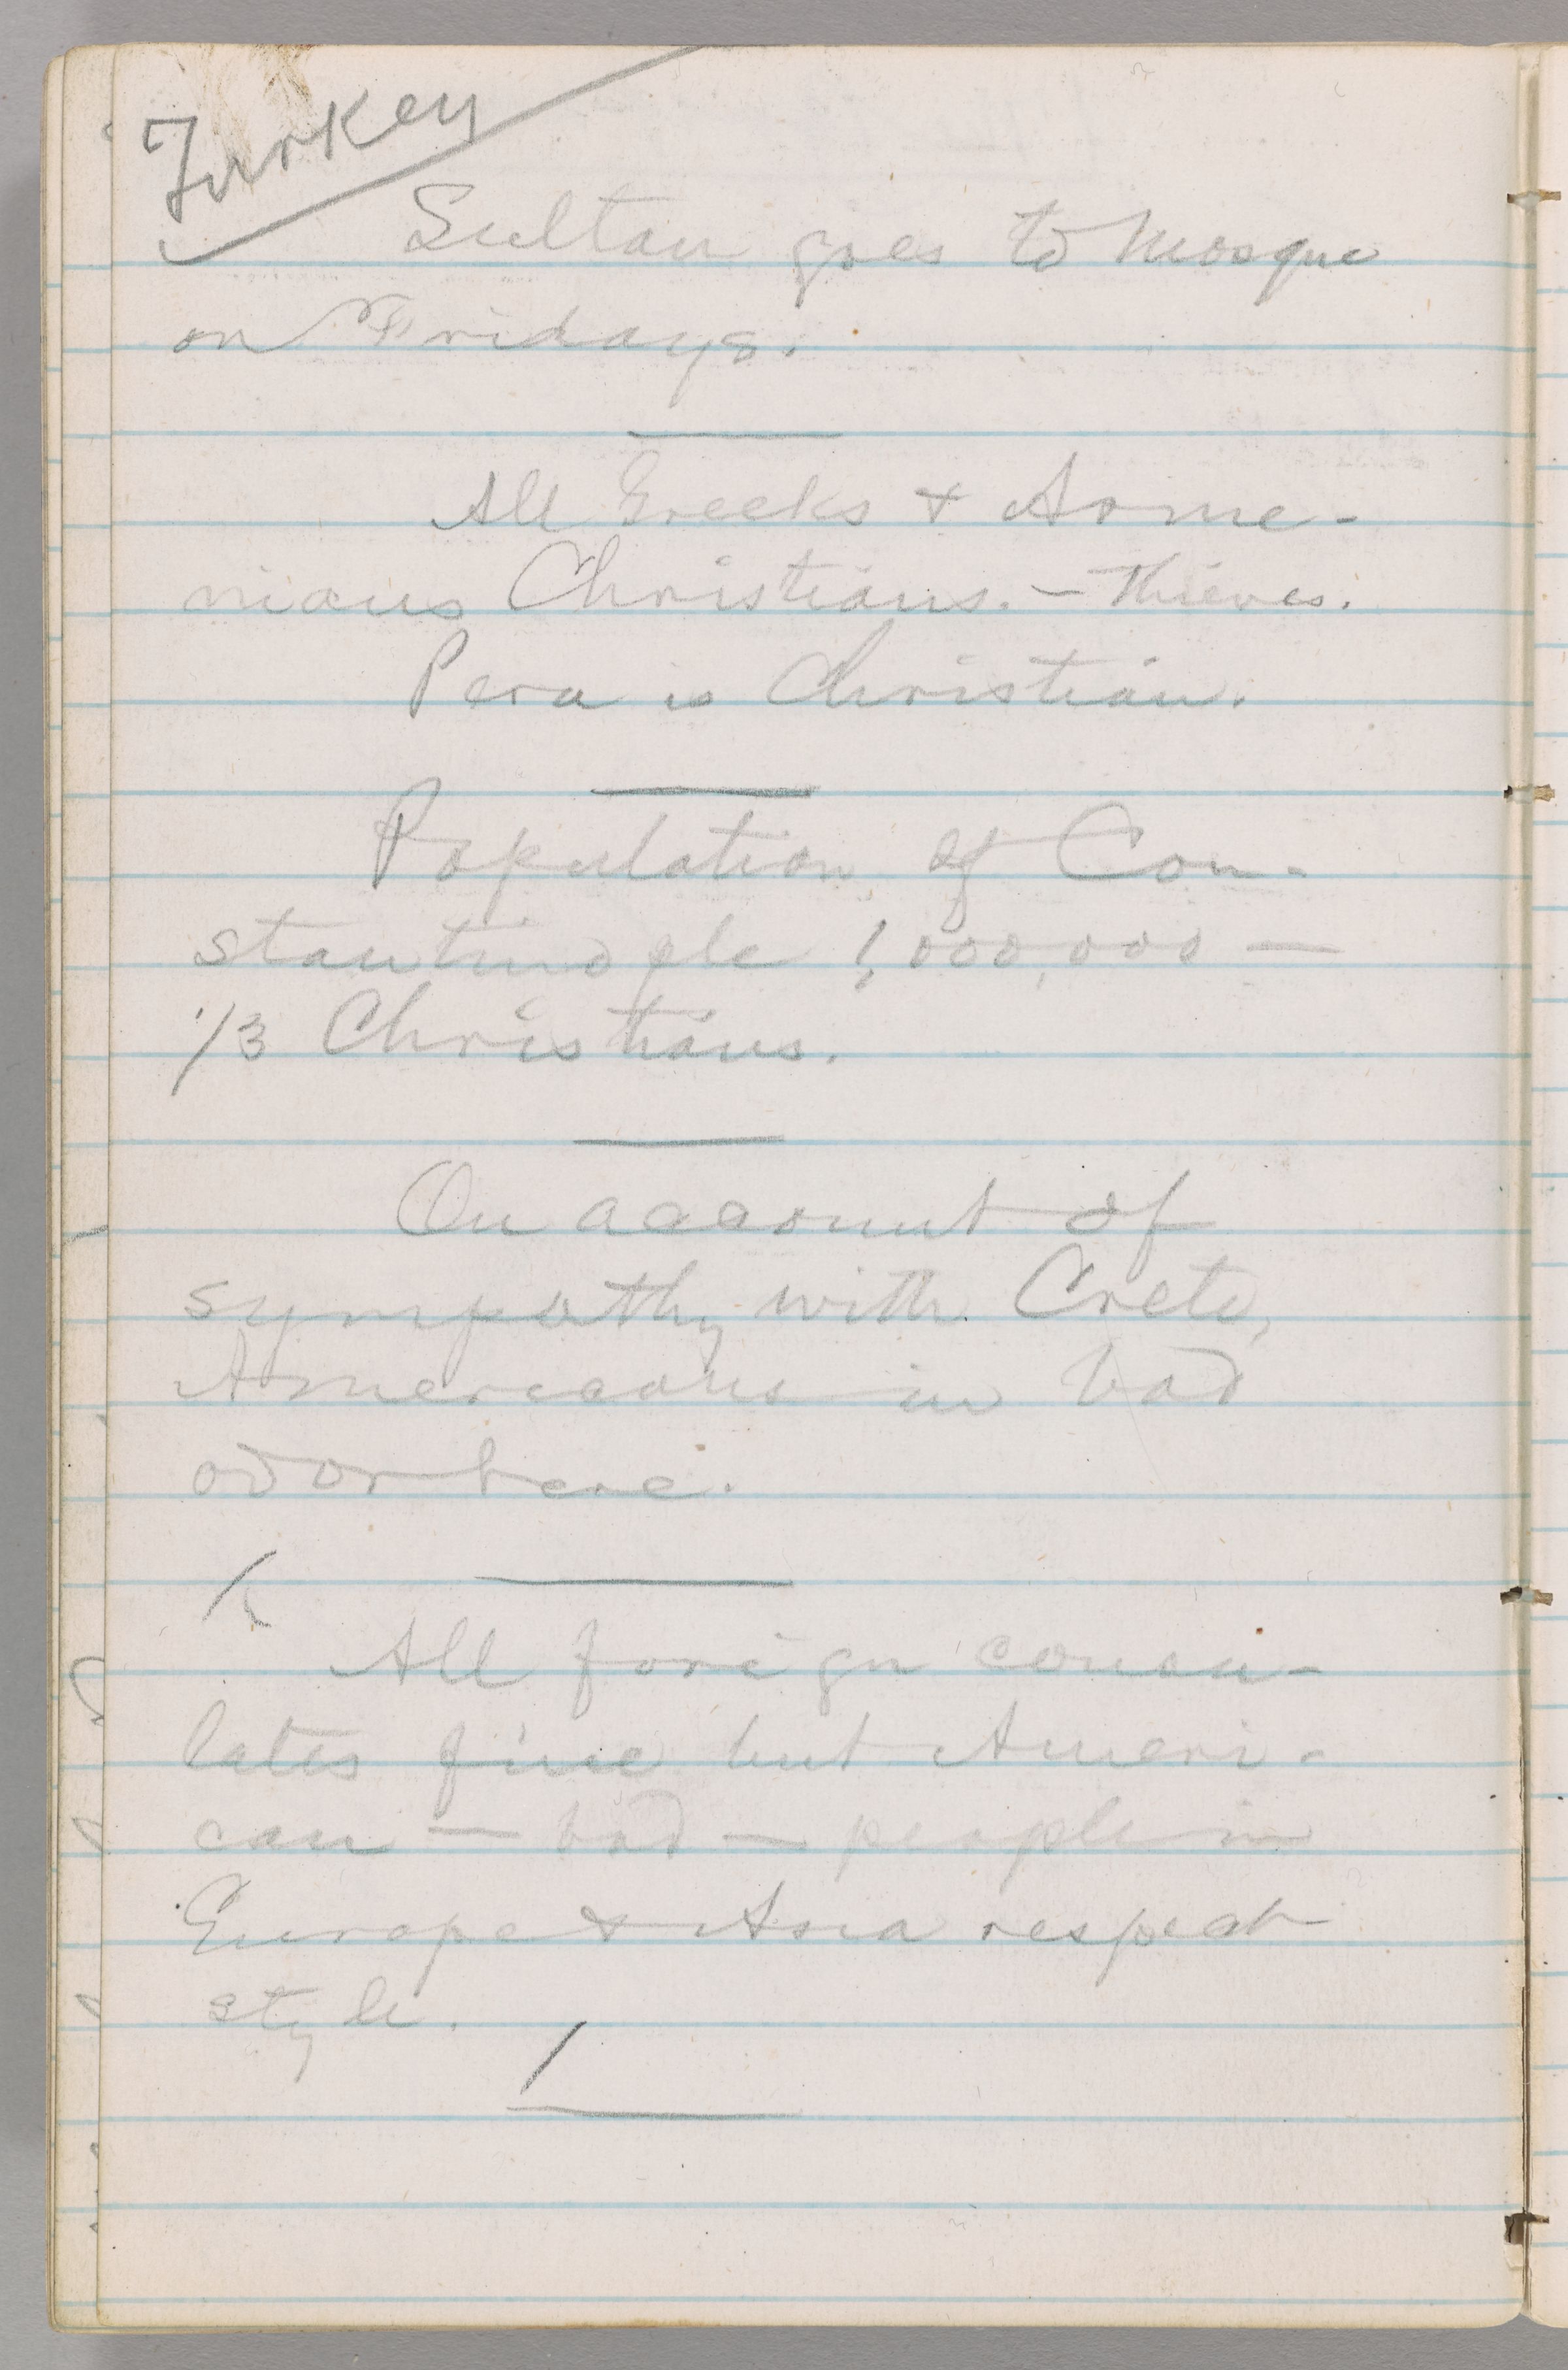 Turkey
Sultan goes to Mosque
on Fridays.
All Greeks & Arme-
nians Christians. — Thieves.
Pera is Christian.
Population of Con-
stantinople 1,000,000 —
1/3 Christians.
On account of
sympathy with Crete,
Americans in bad
odor here.
All foreign consu-
lates fine but Ameri-
can — bad — people in
Europe & Asia respect
style.